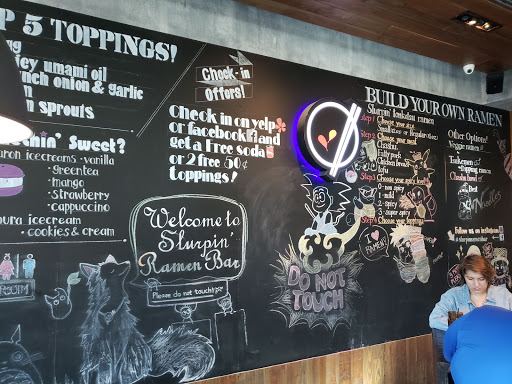 P 5 TOPPINGS!
umami oil
onion & garlic
sprouts
Sweet?
icecreams - vanilla
- greentea
- mango
- strawberry
- cappuccino
icecream
- cookies & cream
Check-in
Offers!
Check in on yelp
or facebook and
get a Free soda
or 2 free 50¢
toppings!
Welcome to
Slurpin'
Ramen Bar
Please do not touch
DO NOT
TOUCH
BUILD YOUR OWN RAMEN
Slurpin' tonkotsu ramen
Step 1
Choose your size
Step 2
Choose your meat
Chashu
Tofu
Step 3
0 - non spicy
1 - mild
2 - spicy
3 - super spicy
Step 4
Choose your toppings
I ♥ RAMEN!
Other Options!
Veggie ramen
Tsukemen
Chashu bowl
Best
Noodles
Follow us on instagram